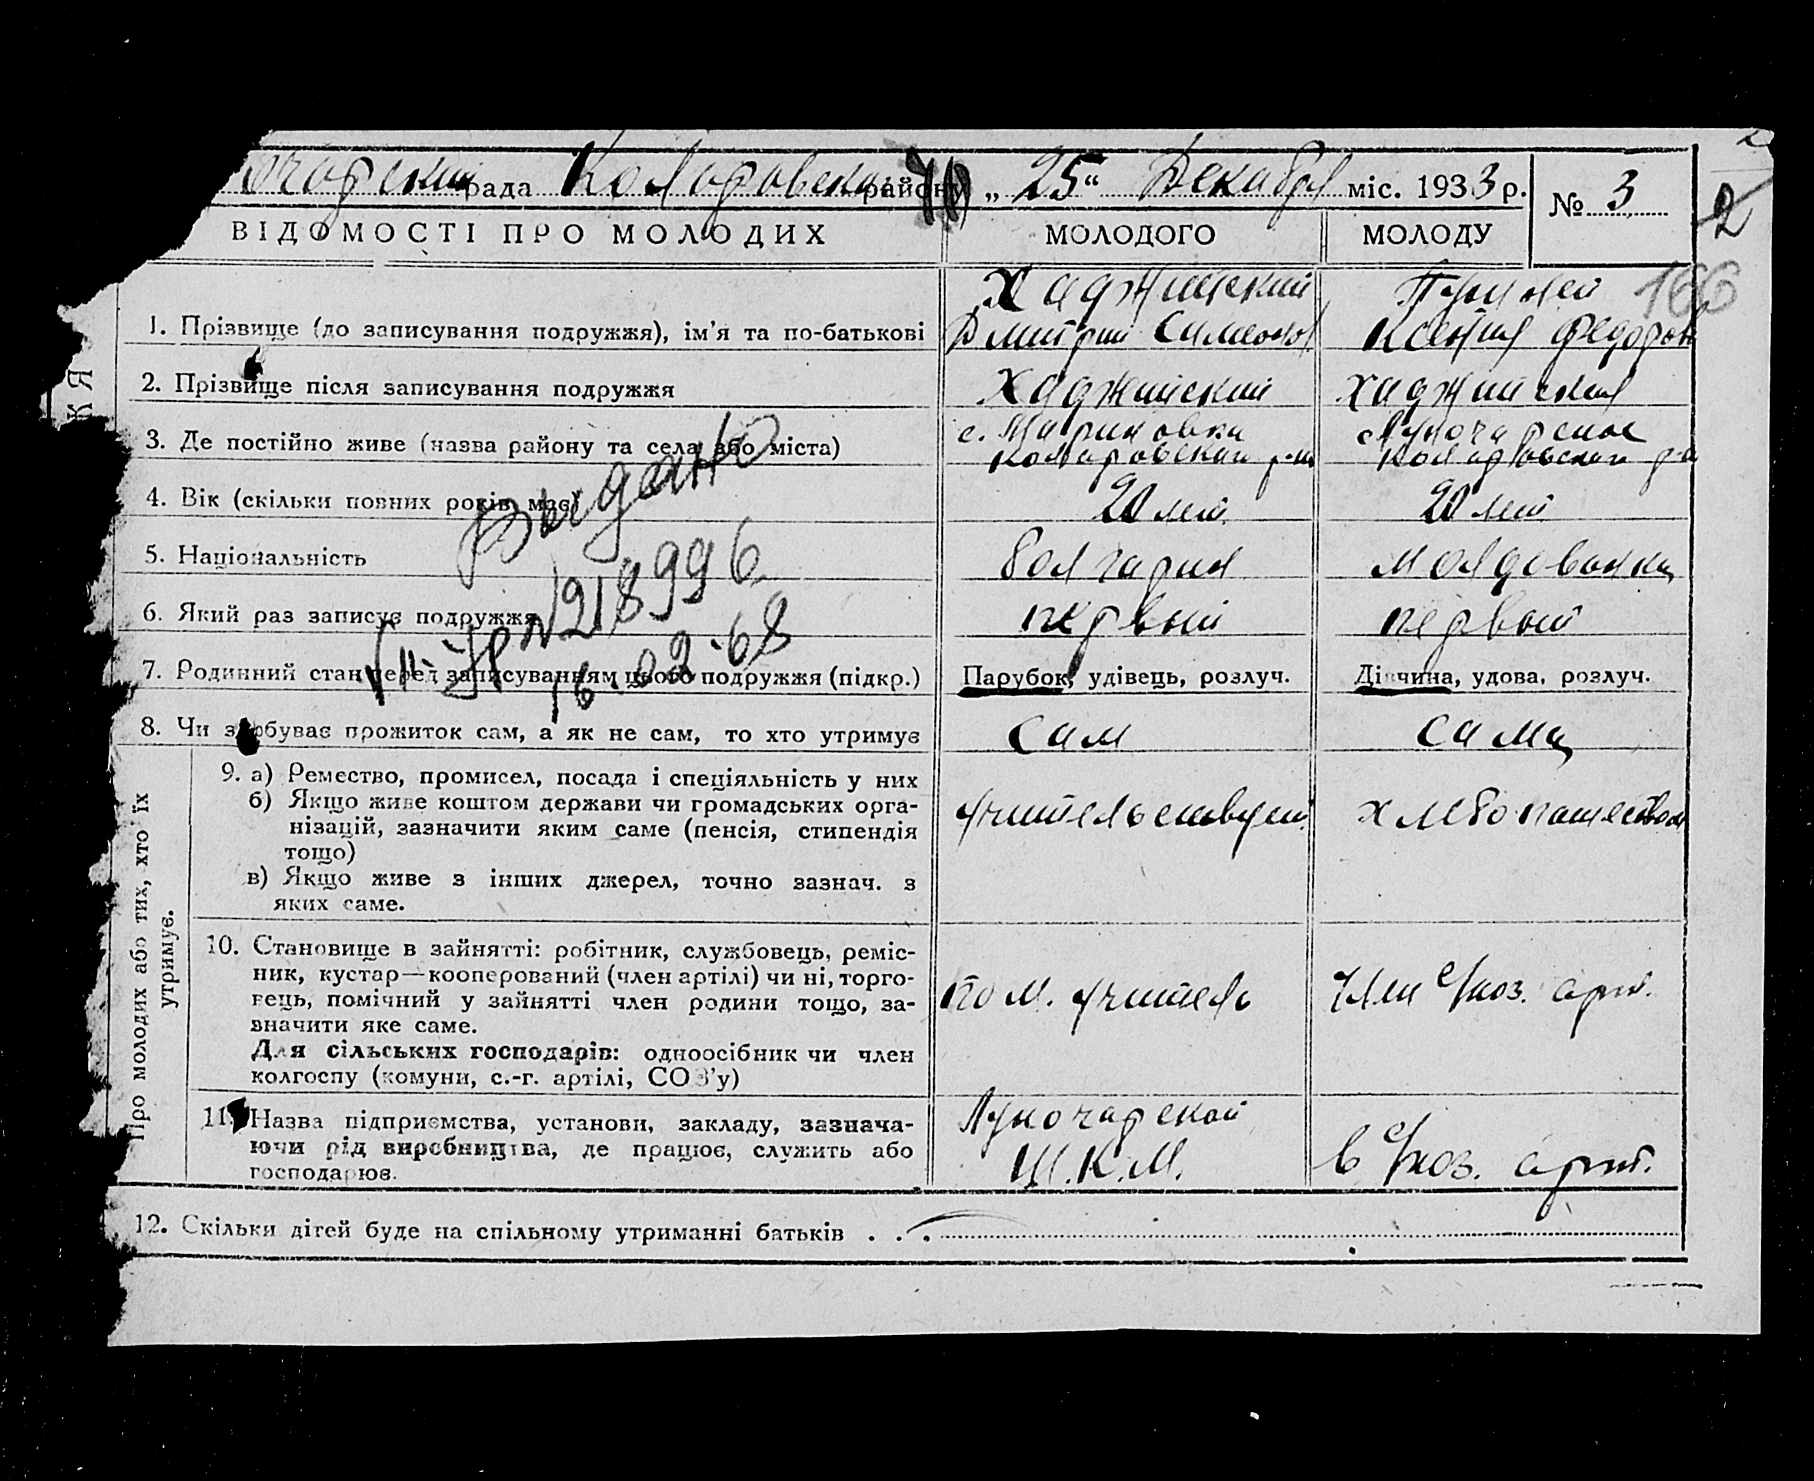 очарский рада Коларовского району „25“ Декабря міс. 1933 р.
№ 3
2
ВІДОМОСТІ ПРО МОЛОДИХ
МОЛОДОГО
МОЛОДУ
166
1. Прізвище (до записування подружжя), ім’я та по-батькові
Хаджийский
Дмитрий Симеонов.
Ксения Федоров
2. Прізвище після записування подружжя
Хаджийский
Хаджийская
КЯ
3. Де постійно живе (назва району та села або міста)
с. Мариновка
Коларовский р-н
Луночарское
Коларовский р-н
4. Вік (скільки повних років має)
20 лет
20 лет
Выдано
5. Національність
болгарин
молдованка
6. Який раз записує подружжя
первый
первый
№218996
16.02.68
7. Родинний стан перед записуванням цього подружжя (підкр.)
Парубок, удівець, розлуч.
Дівчина, удова, розлуч.
8. Чи здобуває прожиток сам, а як не сам, то хто утримує
сам
сама
Про молодих або тих, хто їх утримує.
9. а) Ремество, промисел, посада і спеціяльність у них
б) Якщо живе коштом держави чи громадських орга-
нізацій, зазначити яким саме (пенсія, стипендія
тощо)
в) Якщо живе з інших джерел, точно зазнач. з
яких саме.
учительствует
хлебопашеством
10. Становище в зайнятті: робітник, службовець, реміс-
ник, кустар—кооперований (член артілі) чи ні, торго-
вець, помічний у зайнятті член родини тощо, за-
значити яке саме.
Для сільських господарів: одноосібник чи член
колгоспу (комуни, с.-г. артілі, СОЗ’у)
пом. учитель
член с/хоз. арт.
11. Назва підприємства, установи, закладу, зазнача-
ючи рід виробництва, де працює, служить або
господарює.
Луночарской
Ш.К.М.
в с/хоз. арт.
12. Скільки дітей буде на спільному утриманні батьків . . .